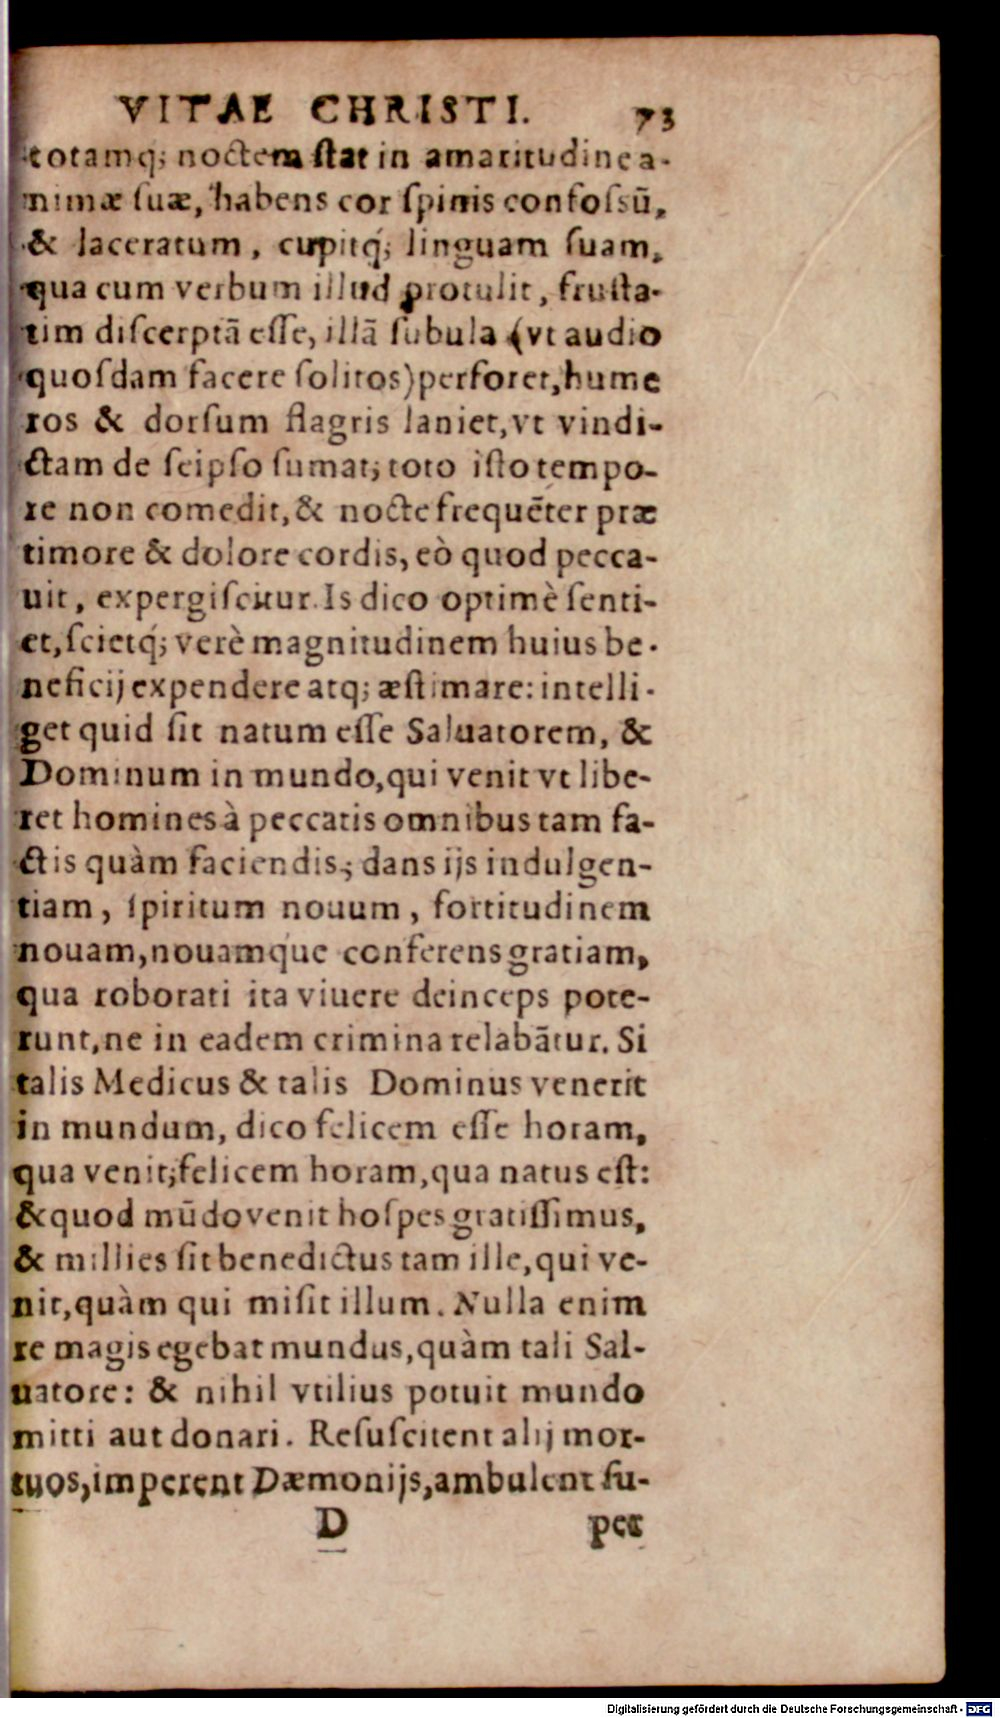 VITAE CHRISTI. 73
totamq; noctem ſtat in amaritudine a-
nimæ ſuæ, habens cor ſpinis confoſsū,
& laceratum, cupitq́; linguam ſuam,
qua cum verbum illud protulit, fruſta-
tim diſcerptā eſſe, illā ſubula (vt audio
quoſdam facere ſolitos) perforet, hume
ros & dorſum flagris laniet, vt vindi-
ctam de ſeipſo ſumat; toto iſto tempo-
re non comedit, & nocte frequēter præ
timore & dolore cordis, eò quod pecca-
uit, expergiſcitur. Is dico optimè ſenti-
et, ſcietq́; verè magnitudinem huius be-
neficij expendere atq; æſtimare: intelli-
get quid ſit natum eſſe Saluatorem, &
Dominum in mundo, qui venit vt libe-
ret homines à peccatis omnibus tam fa-
ctis quàm faciendis; dans ijs indulgen-
tiam, ſpiritum nouum, fortitudinem
nouam, nouamque conferens gratiam,
qua roborati ita viuere deinceps pote-
runt, ne in eadem crimina relabātur. Si
talis Medicus & talis Dominus venerit
in mundum, dico felicem eſſe horam,
qua venit; felicem horam, qua natus eſt:
& quod mūdo venit hoſpes gratiſſimus,
& millies ſit benedictus tam ille, qui ve-
nit, quàm qui miſit illum. Nulla enim
re magis egebat mundus, quàm tali Sal-
uatore: & nihil vtilius potuit mundo
mitti aut donari. Reſuſcitent alij mor-
tuos, imperent Dæmonijs, ambulent ſu-
D per
Digitalisierung gefördert durch die Deutsche Forschungsgemeinschaft - DFG